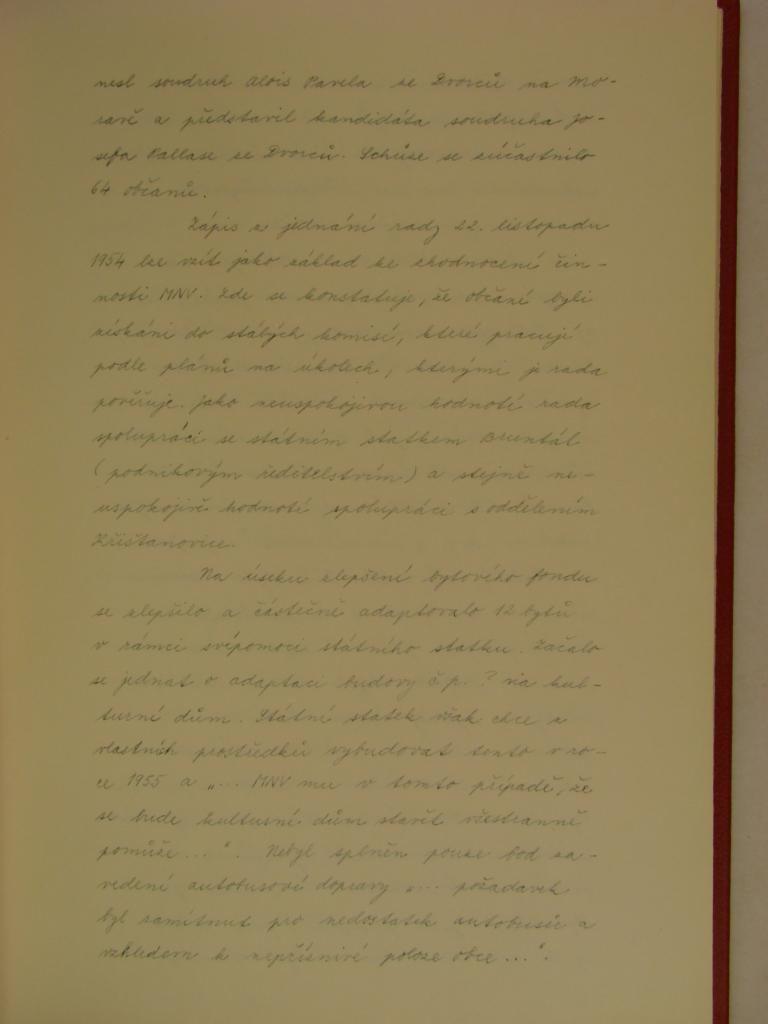 nesl soudruh Alois Pavela ze Dvorců na Mo-
ravě a představil kandidáta soudruha Jo-
sefa Pallase ze Dvorců. Schůze se zúčastnilo
64 občanů.
Zápis z jednání rady 22. listopadu
1954 lze vzít jako základ ke zhodnocení čin-
nosti MNV. Zde se konstatuje, že občané byli
získáni do stálých komisí, které pracují
podle plánů na úkolech, kterými je rada
pověřuje. Jako neuspokojivou hodnotí rada
spolupráci se státním statkem Bruntál
(podnikovým ředitelstvím) a stejně ne-
uspokojivě hodnotí spolupráci s oddělením
Křišťanovice.
Na úseku zlepšení bytového fondu
se zlepšilo a částečně adaptovalo 12 bytů
v rámci svépomoci státního statku. Začalo
se jednat o adaptaci budovy č.p. ? na kul-
turní dům. Státní statek však chce z
vlastních prostředků vybudovat tento v ro-
ce 1955 a „... MNV mu v tomto případě, že
se bude kulturní dům stavět všestranně
pomůže...“. Nebyl splněn pouze bod za-
vedení autobusové dopravy „... požadavek
byl zamítnut pro nedostatek autobusů a
vzhledem k nepříznivé poloze obce ...“.